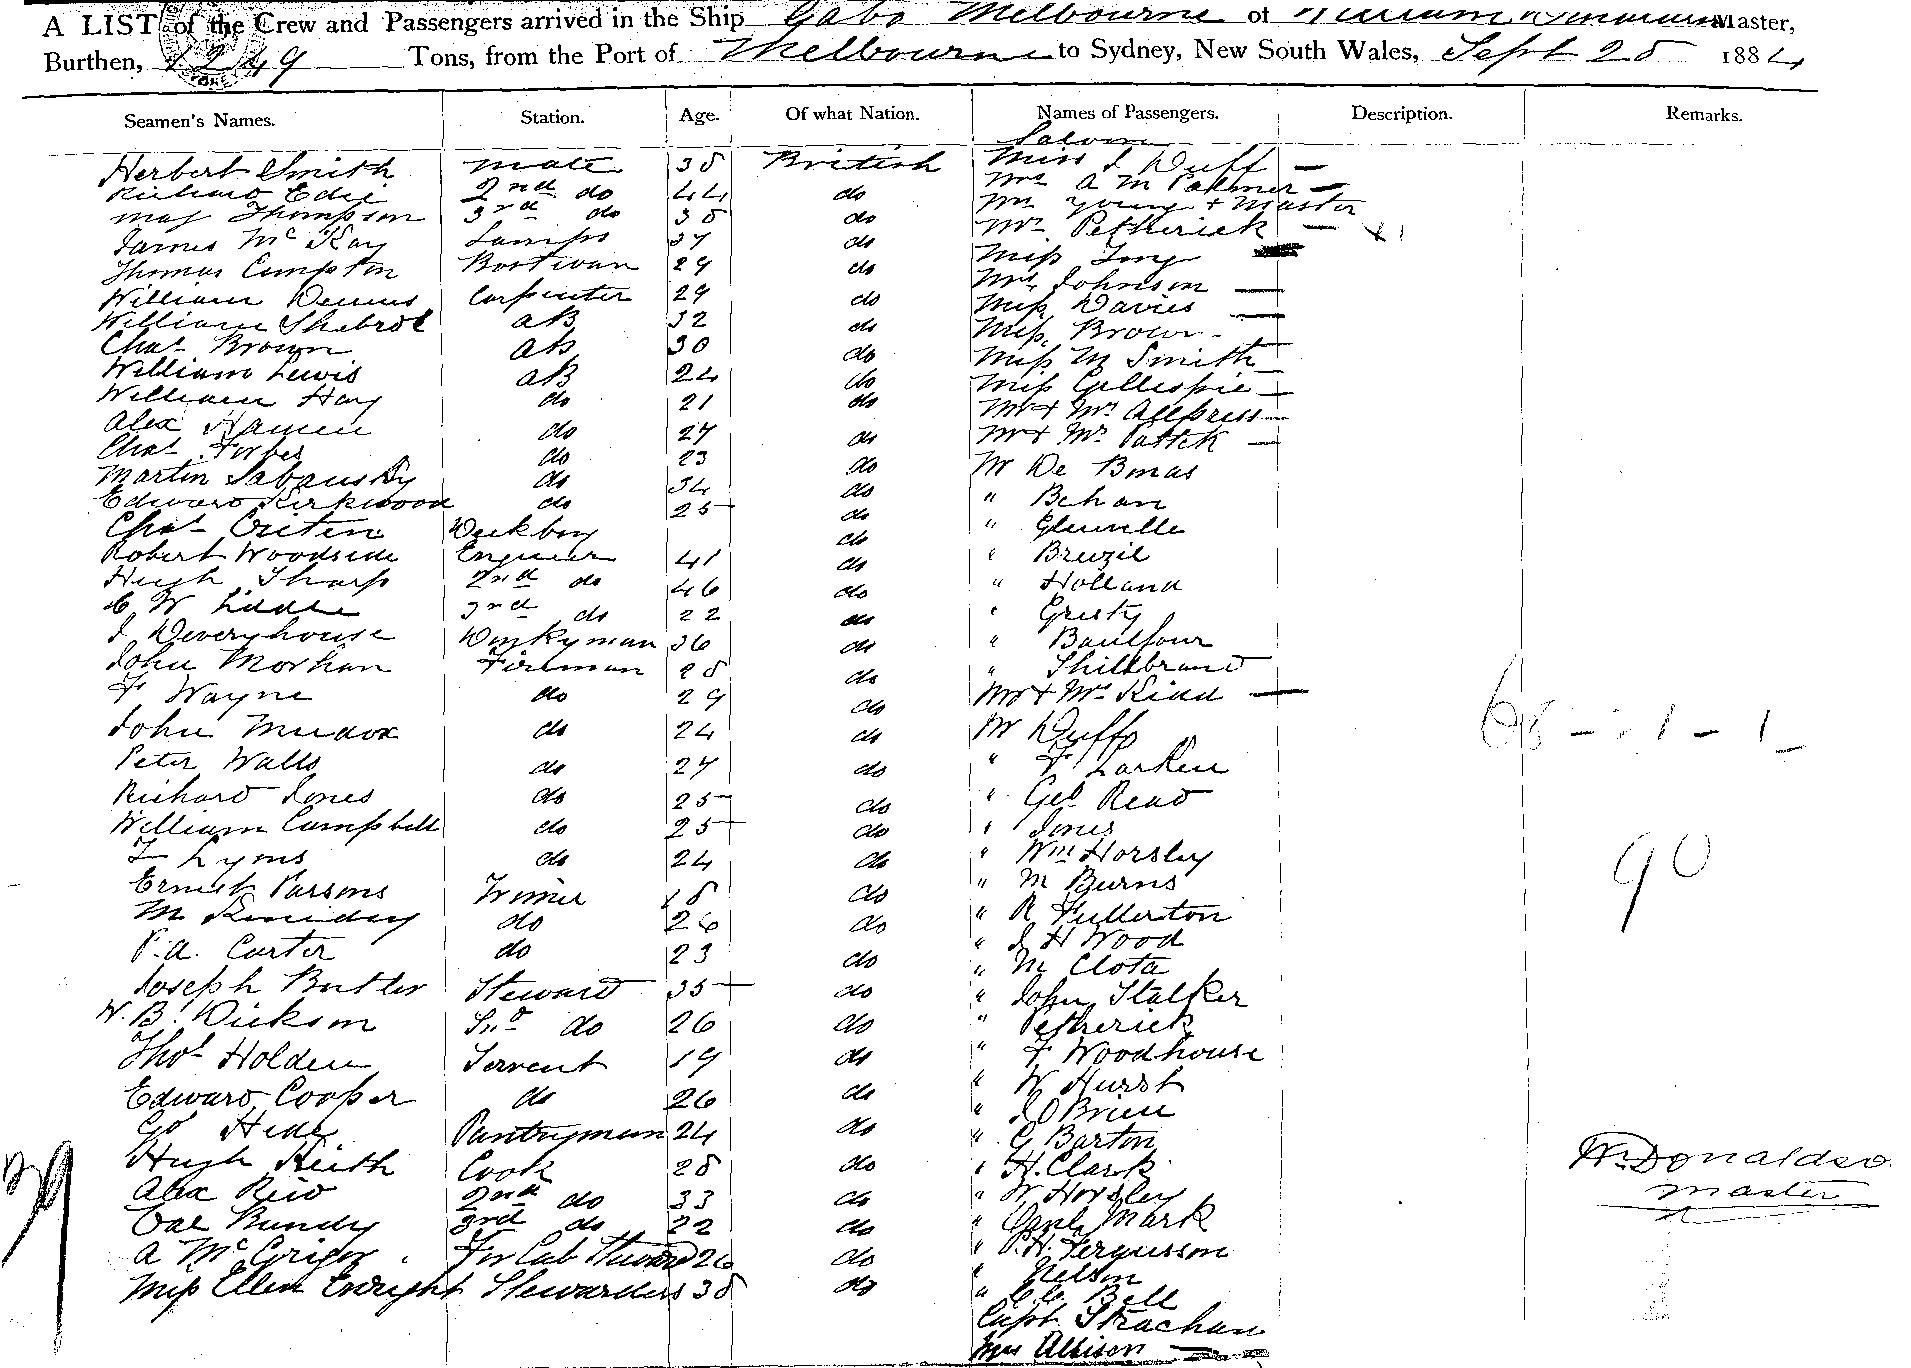 A LIST of the Crew and Passengers arrived in the Ship Gabo Melbourne of William Master,
Burthen, 1249 Tons, from the Port of Melbourne to Sydney, New South Wales, Sept 25 1884
Seamen's Names. Station. Age. Of what Nation. Names of Passengers. Description. Remarks.
Saloon
Herbert Smith Mate 38 British Miss J Duff —
Richard Edie 2nd do 44 do Mrs A M Palmer —
May Thompson 3rd do 38 do Mrs Young + Master
James McKay Lamps 37 do Mrs Petherick —
Thomas Compton Boatswain 29 do Miss Tong
William Dennis Carpenter 29 do Mrs Johnson —
William AB 32 do Miss Davies —
Chas Brown AB 30 do Miss Brown -
William Lewis AB 24 do Miss M Smith —
William Hay do 21 do Miss Gillespie —
Alex do 27 do Mr + Mrs Allpress —
Chas Forbes do 23 do Mr + Mrs —
Martin do 34 do Mr De
Edward Kirkwood do 25 do " Behan
Chas Deckboy do " Glenville
Robert Woodside Engineer 41 do "
Hugh Sharp 2nd do 46 do " Holland
W Liddle 3rd do 22 do " Gristy
J Deveryhouse Donkyman 36 do " Baulfour
John Fireman 28 do "
F Wayne do 29 do Mr + Mrs Kidd —
John do 24 do Mr Duff
Peter Walls do 27 do " F Larken
Richard Jones do 25 do " Geo Read
William Campbell do 25 do " Jones
Lyons do 24 do " Wm Horsley
Ernest Parsons Trimer 18 do " M Burns
M do 26 do " R Fullerton
P.A. Carter do 23 do " J H Wood
Joseph Butler Steward 35 do " M Clota
W. B. Dickson do 26 do " John Stalker
Thos Holden Servent 19 do " Petherick
Edward Cooper do 26 do " F Woodhouse
Geo Pantryman 24 do " W Hurst
Hugh Keith Cook 28 do " J O Brien
Alex Reid 2nd do 33 do " G Barton
Bundy 3rd do 22 do " H. Clark
A McGrigor For Cab Steward 26 do " W. Horsley
Miss Ellen Enright Stewardess 38 do " Mark
" P.H. Fergusson
" Nelson
" Bell
Capt. Strachan
Allison
90
W. Donaldso
Master
39